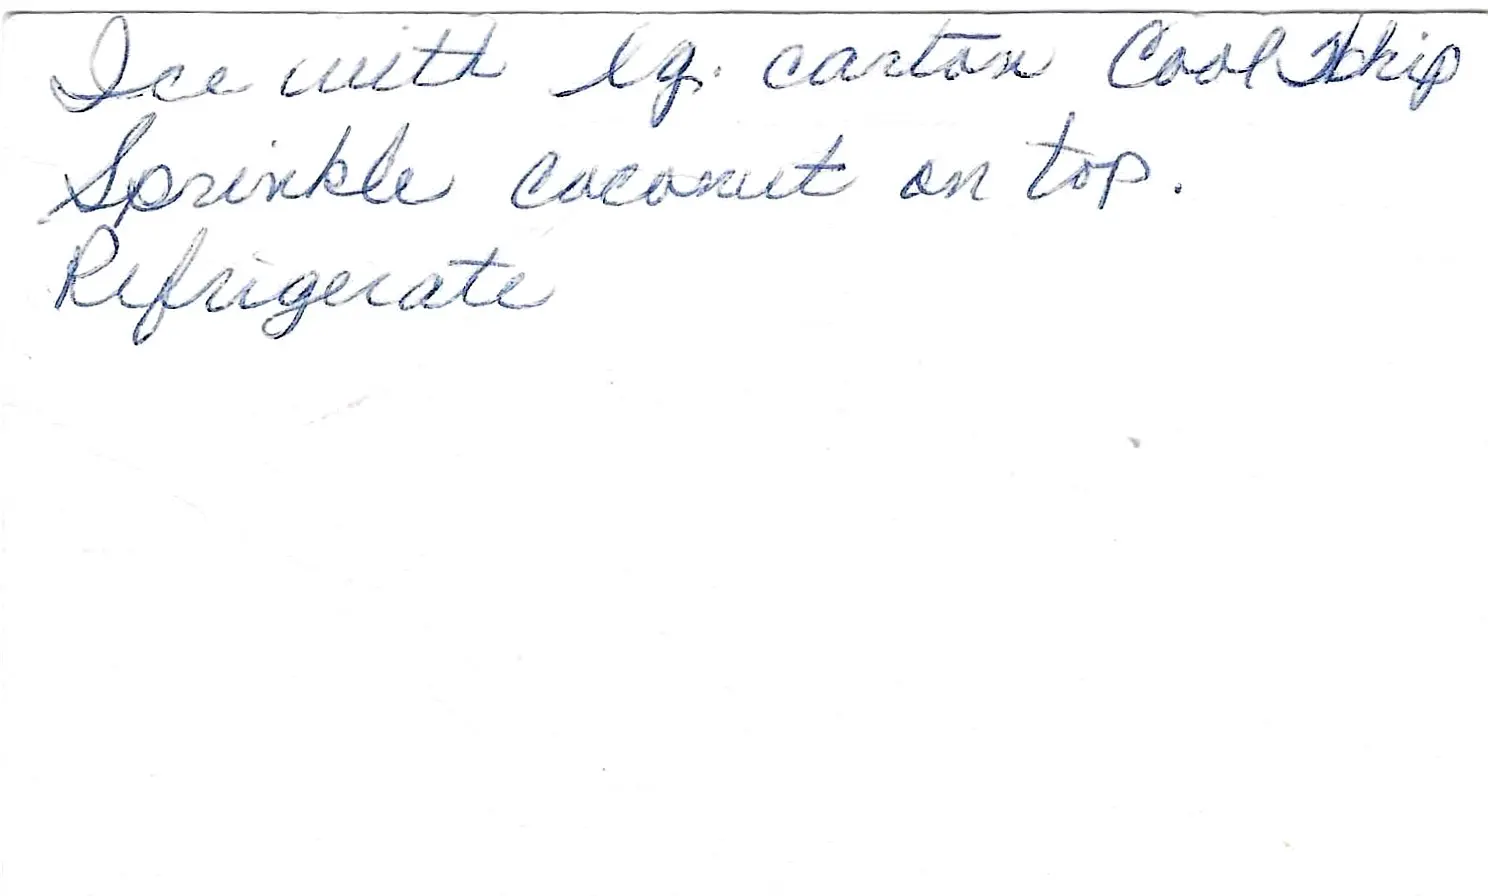 Ice with lg. carton Cool Whip
Sprinkle coconut on top.
Refrigerate